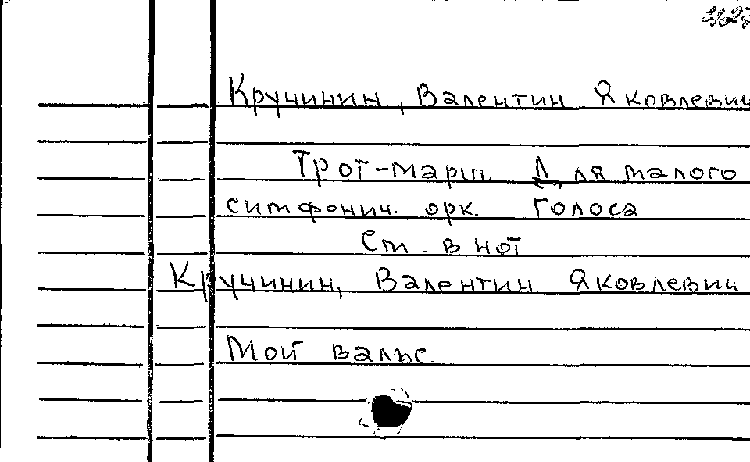 Кручинин, Валентин Яковлевич
Трот-марш. Для малого
симфонич. орк. Голоса
См. в нот
Кручинин, Валентин Яковлевич
Мой вальс.